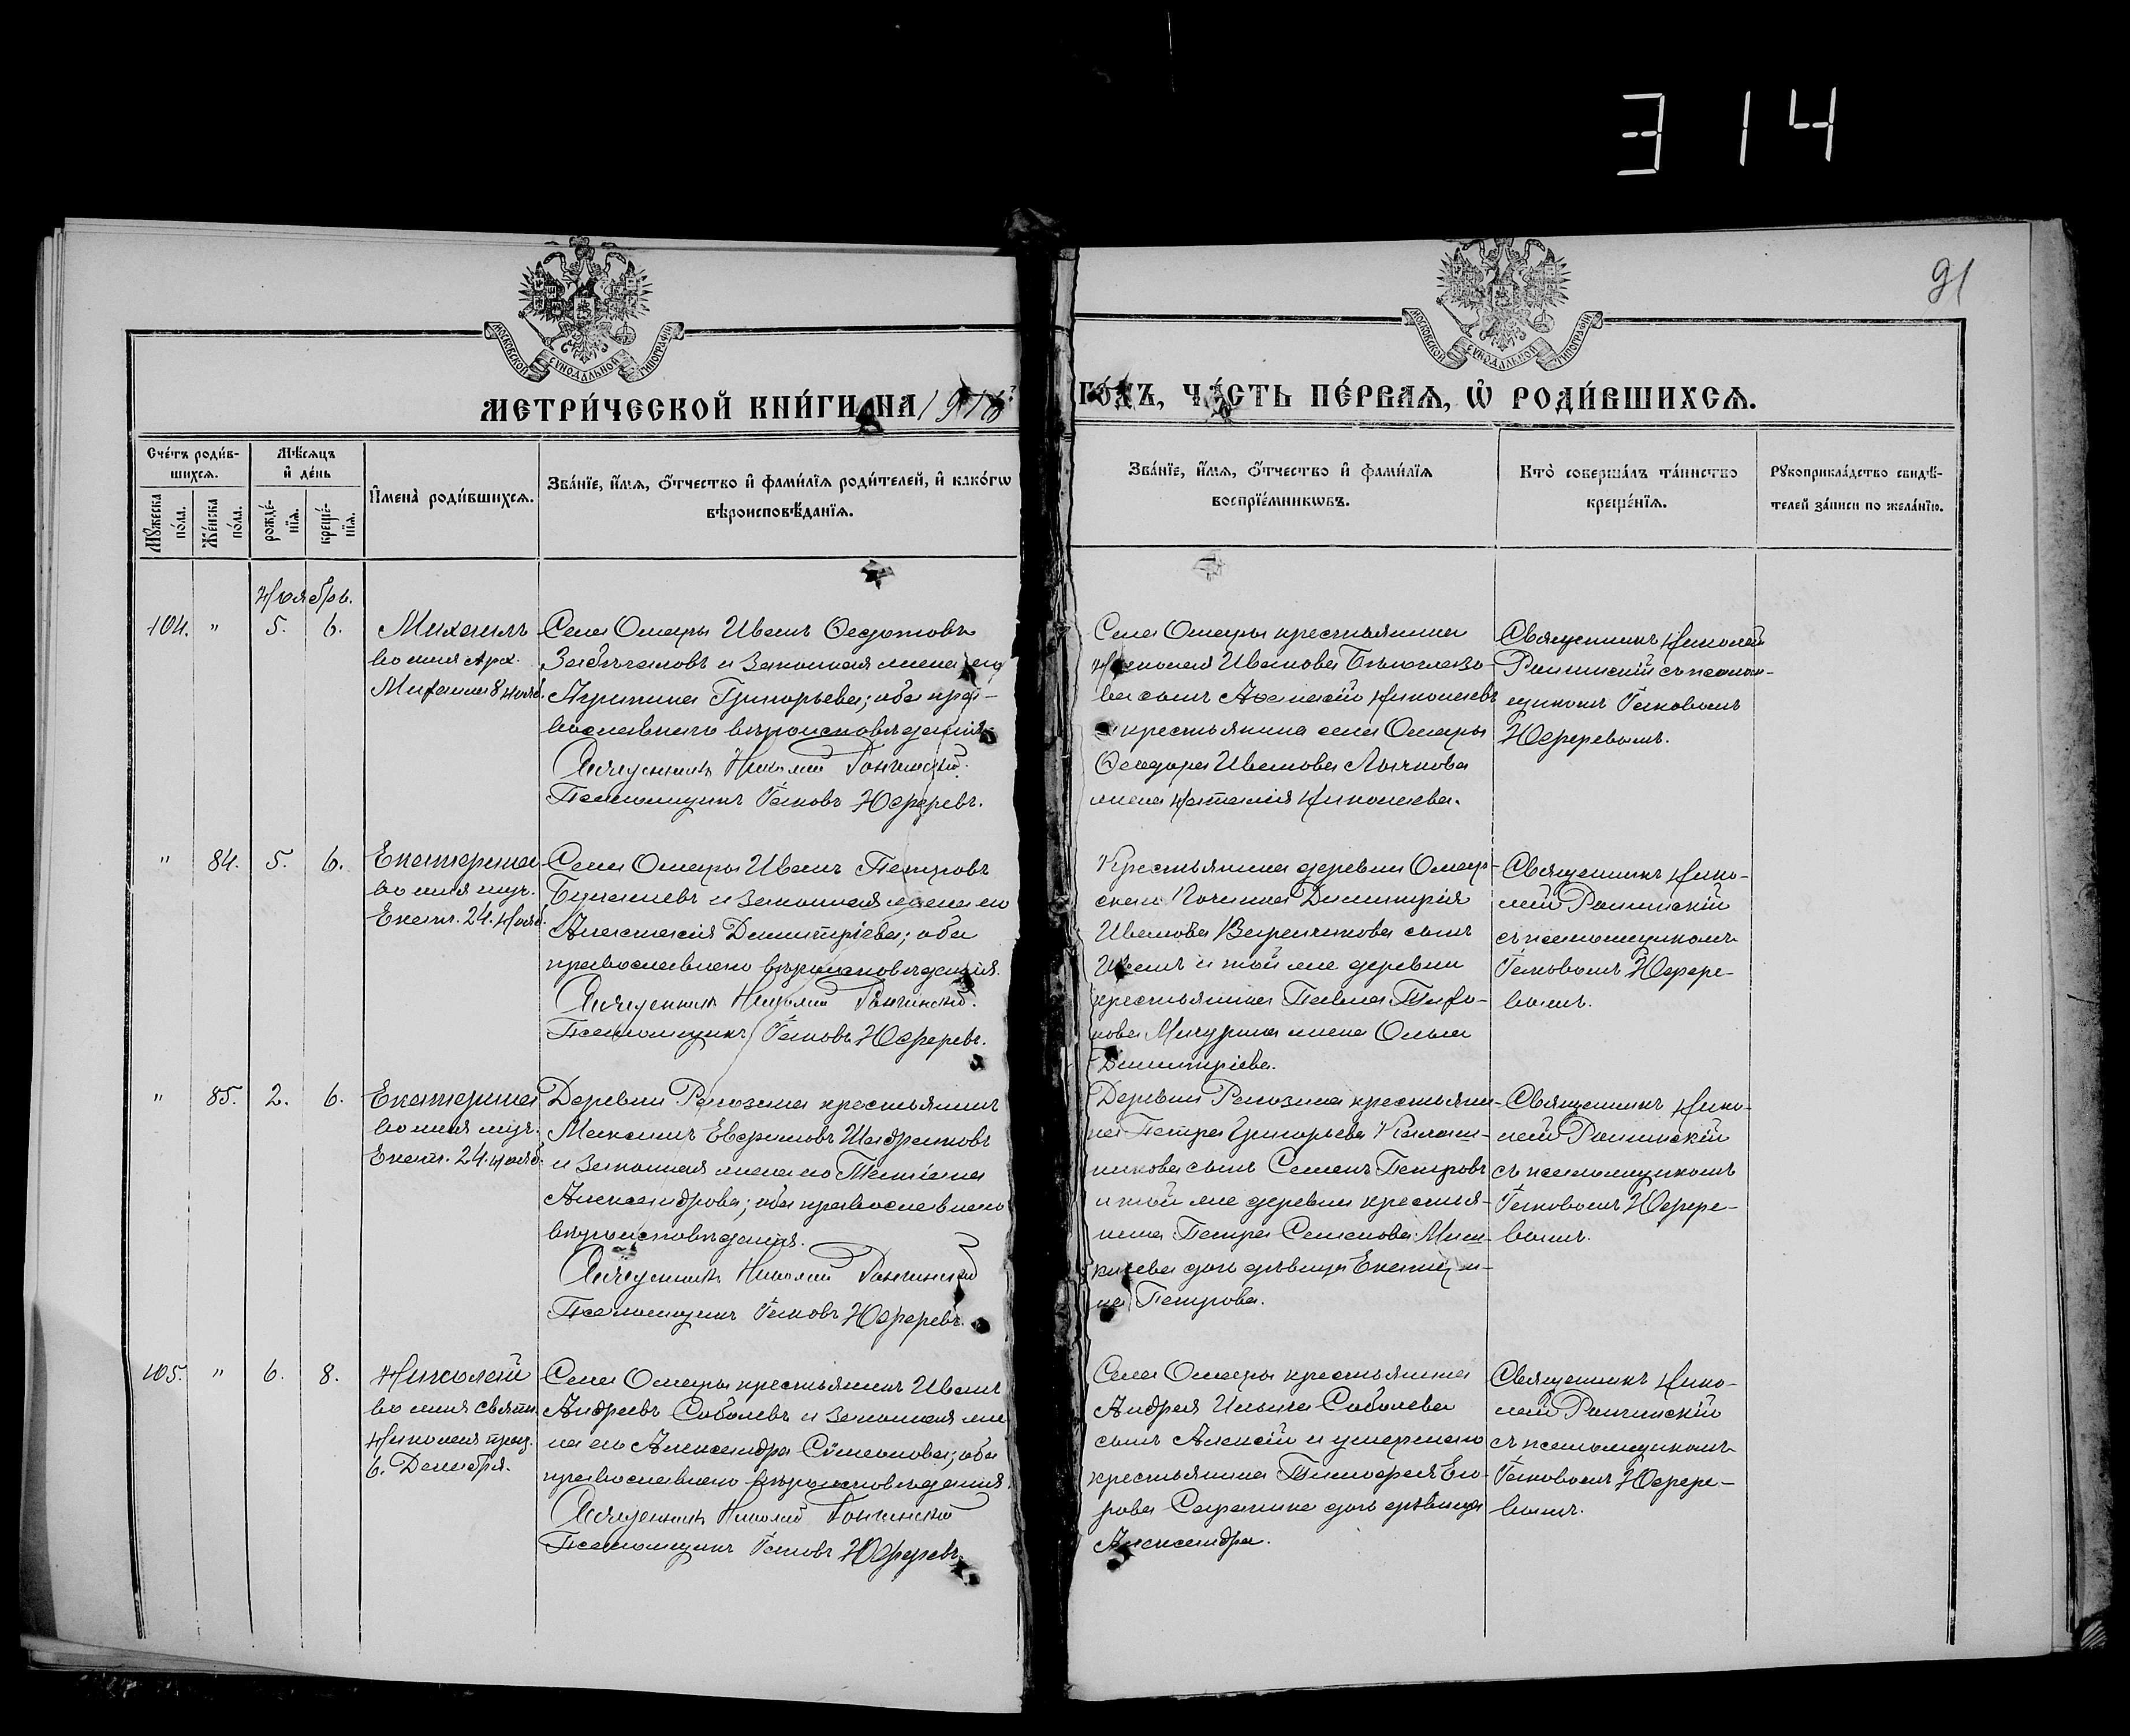 314
91
МОСКОВСКОЙ СѴНОДАЛЬНОЙ ТИПОГРАФІИ
МОСКОВСКОЙ СѴНОДАЛЬНОЙ ТИПОГРАФІИ
МЕТРИ́ЧЕСКОЙ КНИ́ГИ НА 191
ГО́ДЪ, ЧА́СТЬ ПЕ́РВАѦ, Ѽ РОДИ́ВШИХСѦ.
Сче́тъ роди́в-
шихсѧ.
Мꙋжеска по́ла.
Же́нска по́ла.
Мѣ́сѧцъ
и҆ де́нь
рожде́-
нїѧ.
креще́-
нїѧ.
И҆мена̀ роди́вшихсѧ.
Зва́нїе, и҆́мѧ, ѻ҆́тчество и҆ фами́лїѧ роди́телей, и҆ како́гѡ
вѣроисповѣ́данїѧ.
Зва́нїе, и҆́мѧ, ѻ҆́тчество и҆ фами́лїѧ
воспрїе́мникѡвъ.
Кто̀ соверша́лъ та́инство
креще́нїѧ.
Рꙋкоприкла́дство свидѣ́-
телей за́писи по жела́нїю.
Ноябрь.
104. " 5. 6.
Михаилъ
во имя Арх.
Михаила 8 Нояб.
Села Омары Иванъ Ѳедотовъ
и законная жена его
Агрипина Григорьева; оба пра-
вославнаго вѣроисповѣданія.
Священникъ Николай
Псаломщикъ Іаковъ Юферевъ.
Села Омары крестьянина
Николая Иванова Бѣлоглазо-
ва сынъ Николаевъ
и крестьянина села Омары
Ѳеодора Иванова Лычкова
жена Наталія Николаева.
Священникъ Николай
съ псалом-
щикомъ Іаковомъ
Юферевымъ.
" 84. 5. 6.
Екатерина
во имя муч.
Екат. 24. Нояб.
Села Омары Иванъ Петровъ
и законная жена его
Анастасія Димитріева; оба
православнаго вѣроисповѣданія.
Священникъ Николай
Псаломщикъ Іаковъ Юферевъ.
Крестьянина деревни Омар-
скаго Починка Димитрія
Иванова сынъ
Иванъ и той же деревни
крестьянина Павла Тихо-
нова Мичурина жена Ольга
Димитріева.
Священникъ Нико-
лай
съ псаломщикомъ
Іаковомъ Юфере-
вымъ.
" 85. 2. 6.
Екатерина
во имя муч.
Екат. 24. Нояб.
Деревни Рагозина крестьянинъ
Максимъ Евфимовъ
и законная жена его Татіана
Александрова; оба православнаго
вѣроисповѣданія.
Священникъ Николай
Псаломщикъ Іаковъ Юферевъ.
Деревни Рагозина крестьяни-
на Петра Григорьева Калаш-
никова сынъ Семенъ Петровъ
и той же деревни крестья-
нина Петра Семенова
дочь дѣвица Екатери-
на Петрова.
Священникъ Нико-
лай
съ псаломщикомъ
Іаковомъ Юфере-
вымъ.
105. " 6. 8.
Николай
во имя святит.
Николая праз.
6. Декабря.
Села Омары крестьянинъ Иванъ
Андреевъ Соболевъ и законная же-
на его Александра Сѵмеонова; оба
православнаго вѣроисповѣданія.
Священникъ Николай
Псаломщикъ Іаковъ Юферевъ.
Села Омары крестьянина
Андрея Ильина Соболева
сынъ Алексій и умершаго
крестьянина Тимофея Его-
рова дочь дѣвица
Александра.
Священникъ Нико-
лай
съ псаломщикомъ
Іаковомъ Юфере-
вымъ.